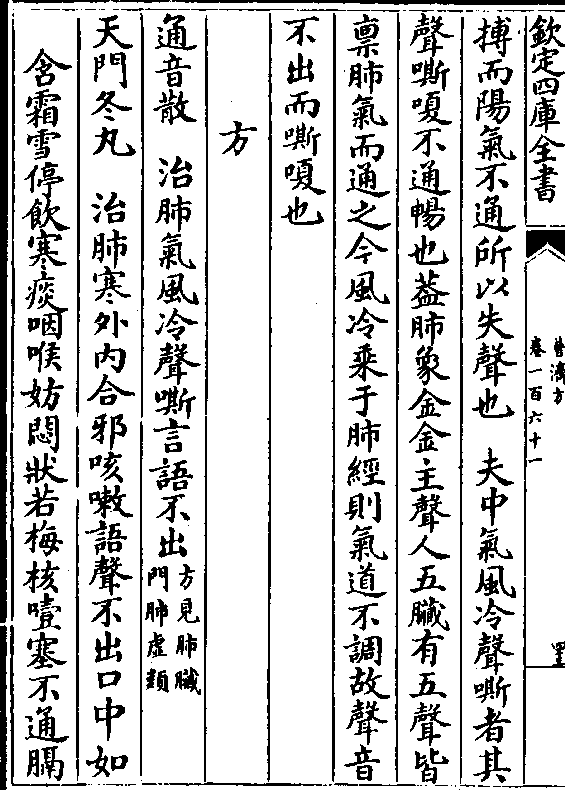 欽定四庫全書
普濟方
卷一百六十一
搏而陽氣不通所以失聲也 夫中氣風冷聲嘶者其
聲嘶嗄不通暢也葢肺象金金主聲人五臟有五聲皆
禀肺氣而通之今風冷乘于肺經則氣道不調故聲音
不出而嘶嗄也
方
通音散 治肺氣風冷聲嘶言語不出方見肺臟門肺虛類
天門冬丸 治肺寒外内合邪咳嗽語聲不出口中如
含霜雪停飲寒痰咽喉妨悶狀若梅核噎塞不通膈